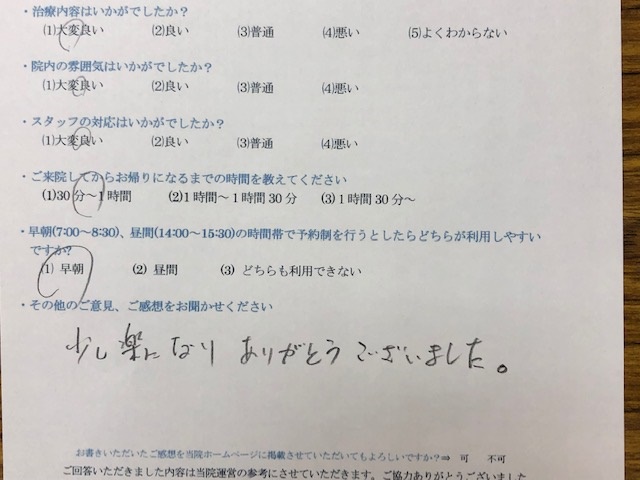 ・治療内容はいかがでしたか？
(1)大変良い　(2)良い　(3)普通　(4)悪い　(5)よくわからない
・院内の雰囲気はいかがでしたか？
(1)大変良い　(2)良い　(3)普通　(4)悪い
・スタッフの対応はいかがでしたか？
(1)大変良い　(2)良い　(3)普通　(4)悪い
・ご来院してからお帰りになるまでの時間を教えてください
(1)30分～1時間　(2)1時間～1時間30分　(3)1時間30分～
・早朝(7:00～8:30)、昼間(14:00～15:30)の時間帯で予約制を行うとしたらどちらが利用しやすい
ですか?
(1) 早朝　(2) 昼間　(3) どちらも利用できない
・その他のご意見、ご感想をお聞かせください
少し楽になり ありがとうございました。
お書きいただいたご感想を当院ホームページに掲載させていただいてもよろしいですか?⇒　可　不可
ご回答いただきました内容は当院運営の参考にさせていただきます。ご協力ありがとうございました